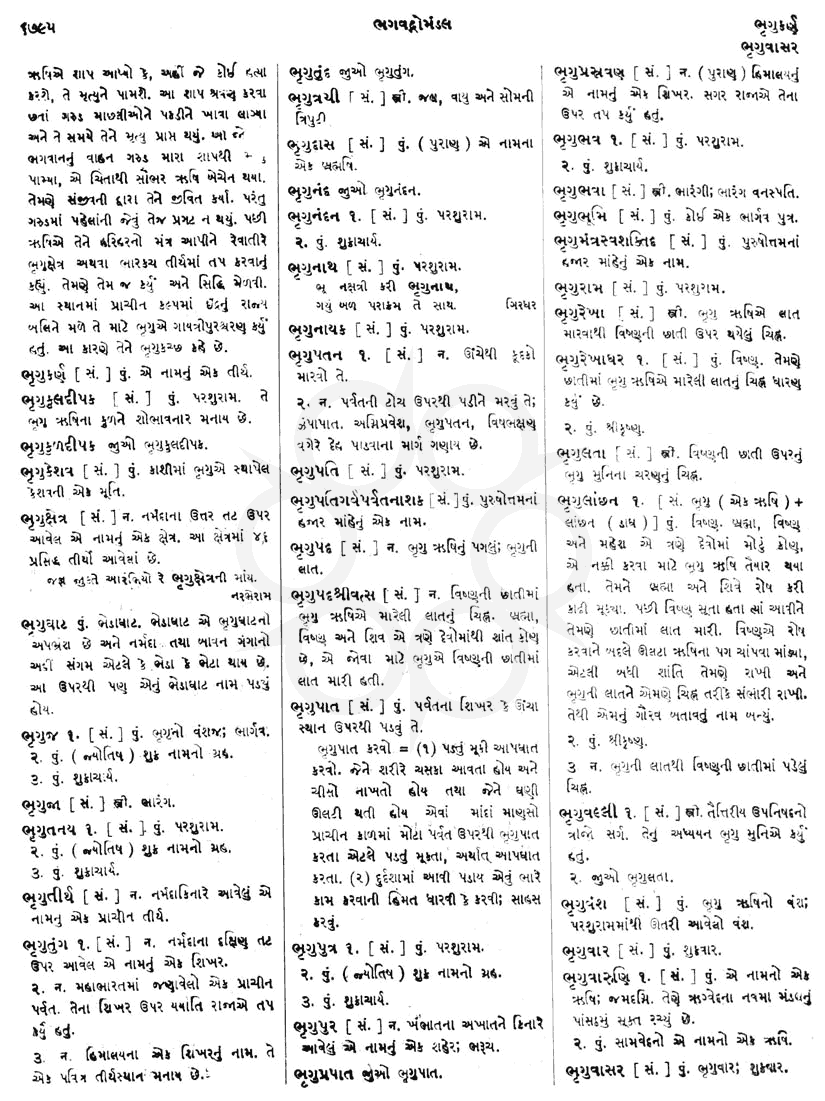 ૬૭૯૫
ભગવદ્ગોમંડલ
ભૃગુકર્ણ
ભૃગુવાસર
ઋષિએ શાપ આપ્યો કે, અહીં જે કોઈ હત્યા
કરશે, તે મૃત્યુને પામશે. આ શાપ શ્રવણ કરવા
છતાં ગરુડ માછલીઓને પકડીને ખાવા લાગ્યા
અને તે સમયે તેને મૃત્યુ પ્રાપ્ત થયું. આ જે
ભગવાનનું વાહન ગરુડ મારા શાપથી
પામ્યા, એ ચિંતાથી સૌભર ઋષિ બેચેન થયા.
તેમણે સંજીવની દ્વારા તેને જીવિત કર્યા. પરંતુ
ગરુડમાં પહેલાંની જેવું તેજ પ્રગટ ન થયું. પછી
ઋષિએ તેને હરિહરનો મંત્ર આપીને રેવાતીરે
ભૃગુક્ષેત્ર અથવા ભારકચ્ય તીર્થમાં તપ કરવાનું
કહ્યું. તેમણે તેમ જ કર્યું અને સિદ્ધિ મેળવી.
આ સ્થાનમાં પ્રાચીન કલ્પમાં ઇંદ્રનું રાજ્ય
બલિને મળે તે માટે ભૃગુએ ગાયત્રીપુરશ્ચરણ કર્યું
હતું. આ કારણે તેને ભૃગુકચ્છ કહે છે.
ભૃગુકર્ણ [ સં. ] પું. એ નામનું એક તીર્થ.
ભૃગુકુલદીપક [ સં. ] પું. પરશુરામ. તે
ભૃગુ ઋષિના કુળને શોભાવનાર મનાય છે.
ભૃગુકુળદીપક જુઓ ભૃગુકુલદીપક.
ભૃગુકેશવ [ સં. ] પું. કાશીમાં ભૃગુએ સ્થાપેલ
કેશવની એક મૂર્તિ.
ભૃગુક્ષેત્ર [ સં. ] ન. નર્મદાના ઉત્તર તટ ઉપર
આવેલ એ નામનું એક ક્ષેત્ર. આ ક્ષેત્રમાં ૪૬
પ્રસિદ્ધ તીર્થો આવેલાં છે.
જઈ જુક્તે આરંભિયો રે ભૃગુક્ષેત્રની માંય.
નરભેરામ
ભૃગુઘાટ પું. ભેડાઘાટ. ભેડાઘાટ એ ભૃગુઘાટનો
અપભ્રંશ છે અને નર્મદા તથા બાવન ગંગાનો
અહીં સંગમ એટલે કે ભેડા કે ભેટા થાય છે.
આ ઉપરથી પણ એનું ભેડાઘાટ નામ પડ્યું
હોય.
ભૃગુજ ૧. [ સં. ] પું. ભૃગુનો વંશજ; ભાર્ગવ.
૨. પું. ( જ્યોતિષ ) શુક્ર નામનો ગ્રહ.
૩. પું. શુક્રાચાર્ય.
ભૃગુજા [ સં. ] સ્ત્રી. ભારંગ.
ભૃગુતનય ૧. [ સં. ] પું. પરશુરામ.
૨. પું. ( જ્યોતિષ ) શુક્ર નામનો ગ્રહ.
૩. પું. શુક્રાચાર્ય.
ભૃગુતીર્થ [ સં. ] ન. નર્મદાકિનારે આવેલું એ
નામનું એક પ્રાચીન તીર્થ.
ભૃગુતુંગ ૧. [ સં. ] ન. નર્મદાના દક્ષિણ તટ
ઉપર આવેલ એ નામનું એક શિખર.
૨. ન. મહાભારતમાં જણાવેલો એક પ્રાચીન
પર્વત. તેના શિખર ઉપર યયાતિ રાજાએ તપ
કર્યું હતું.
૩. ન. હિમાલયના એક શિખરનું નામ. તે
એક પવિત્ર તીર્થસ્થાન મનાય છે.
ભૃગુતુંદ જુઓ ભૃગુતુંગ.
ભૃગુત્રયી [ સં. ] સ્ત્રી. જલ, વાયુ અને સોમની
ત્રિપુટી
ભૃગુદાસ [ સં. ] પું. ( પુરાણ ) એ નામના
એક બ્રહ્મર્ષિ.
ભૃગુનંદ જુઓ ભૃગુનંદન.
ભૃગુનંદન ૧. [ સં. ] પું. પરશુરામ.
૨. પું. શુક્રાચાર્ય.
ભૃગુનાથ [ સં. ] પું. પરશુરામ.
ભૂ નક્ષત્રી કરી ભૃગુનાથ,
ગયું બળ પરાક્રમ તે સાથ. ગિરધર
ભૃગુનાયક [ સં. ] પું. પરશુરામ.
ભૃગુપતન ૧. [ સં. ] ન. ઊંચેથી કૂદકો
મારવો તે.
૨. ન. પર્વતની ટોચ ઉપરથી પડીને મરવું તે;
ઝંપાપાત. અગ્નિપ્રવેશ, ભૃગુપતન, વિષભક્ષણ
વગેરે દેહ પાડવાના માર્ગ ગણાય છે.
ભૃગુપતિ [ સં. ] પું. પરશુરામ.
ભૃગુપતિગર્વપર્વતનાશક [ સં. ] પું. પુરુષોત્તમનાં
હજાર માંહેનું એક નામ.
ભૃગુપદ [ સં. ] ન. ભૃગુ ઋષિનું પગલું; ભૃગુની
લાત.
ભૃગુપદશ્રીવત્સ [ સં. ] ન. વિષ્ણુની છાતીમાં
ભૃગુ ઋષિએ મારેલી લાતનું ચિહ્ન. બ્રહ્મા,
વિષ્ણુ અને શિવ એ ત્રણે દેવોમાંથી શાંત કોણ
છે, એ જોવા માટે ભૃગુએ વિષ્ણુની છાતીમાં
લાત મારી હતી.
ભૃગુપાત [ સં. ] પું. પર્વતના શિખર કે ઊંચા
સ્થાન ઉપરથી પડવું તે.
ભૃગુપાત કરવો = (૧) પડતું મૂકી આપઘાત
કરવો. જેને શરીરે ચસકા આવતા હોય અને
ચીસો નાખતો હોય તથા જેને ઘણી
ઊલટી થતી હોય એવાં માંદાં માણસો
પ્રાચીન કાળમાં મોટા પર્વત ઉપરથી ભૃગુપાત
કરતા એટલે પડતું મૂકતા, અર્થાત્ આપઘાત
કરતા. (૨) દુર્દશામાં આવી પડાય એવું ભારે
કામ કરવાની હિંમત ધારવી કે કરવી; સાહસ
કરવું.
ભૃગુપુત્ર ૧. [ સં. ] પું. પરશુરામ.
૨. પું. ( જ્યોતિષ ) શુક્ર નામનો ગ્રહ.
૩. પું. શુક્રાચાર્ય.
ભૃગુપુર [ સં. ] ન. ખંભાતના અખાતને કિનારે
આવેલું એ નામનું એક શહેર; ભરૂચ.
ભૃગુપ્રપાત જુઓ ભૃગુપાત.
ભૃગુપ્રસ્રવણ [ સં. ] ન. ( પુરાણ ) હિમાલયનું
એ નામનું એક શિખર. સગર રાજાએ તેના
ઉપર તપ કર્યું હતું.
ભૃગુભવ ૧. [ સં. ] પું. પરશુરામ.
૨. પું. શુક્રાચાર્ય.
ભૃગુભવા [ સં. ] સ્ત્રી. ભારંગી; ભારંગ વનસ્પતિ.
ભૃગુભૂમિ [ સં. ] પું. કોઈ એક ભાર્ગવ પુત્ર.
ભૃગુમંત્રસ્વશક્તિદ [ સં. ] પું. પુરુષોત્તમનાં
હજાર માંહેનું એક નામ.
ભૃગુરામ [ સં. ] પું. પરશુરામ.
ભૃગુરેખા [ સં. ] સ્ત્રી. ભૃગુ ઋષિએ લાત
મારવાથી વિષ્ણુની છાતી ઉપર થયેલું ચિહ્ન.
ભૃગુરેખાધર ૧. [ સં. ] પું. વિષ્ણુ. તેમણે
છાતીમાં ભૃગુ ઋષિએ મારેલી લાતનું ચિહ્ન ધારણ
કર્યું છે.
૨. પું. શ્રીકૃષ્ણ.
ભૃગુલતા [ સં. ] સ્ત્રી. વિષ્ણુની છાતી ઉપરનું
ભૃગુ મુનિના ચરણનું ચિહ્ન.
ભૃગુલાંછન ૧. [ સં. ભૃગુ ( એક ઋષિ ) +
લાંછન ( ડાઘ ) ] પું. વિષ્ણુ. બ્રહ્મા, વિષ્ણુ
અને મહેશ એ ત્રણે દેવોમાં મોટું કોણ,
એ નક્કી કરવા માટે ભૃગુ ઋષિ તૈયાર થયા
હતા. તેમને બ્રહ્મા અને શિવે રોષ કરી
કાઢી મૂક્યા. પછી વિષ્ણુ સૂતા હતા ત્યાં આવીને
તેમણે છાતીમાં લાત મારી. વિષ્ણુએ રોષ
કરવાને બદલે ઊલટા ઋષિના પગ ચાંપવા માંડ્યા,
એટલી બધી શાંતિ તેમણે રાખી અને
ભૃગુની લાતને એમણે ચિહ્ન તરીકે સંભારી રાખી.
તેથી એમનું ગૌરવ બતાવતું નામ બન્યું.
૨. પું. શ્રીકૃષ્ણ.
૩ ન. ભૃગુની લાતથી વિષ્ણુની છાતીમાં પડેલું
ચિહ્ન.
ભૃગુવલ્લી ૧. [ સં. ] સ્ત્રી. તૈત્તિરીય ઉપનિષદનો
ત્રીજો સર્ગ. તેનું અધ્યયન ભૃગુ મુનિએ કર્યું
હતું.
૨. જુઓ ભૃગુલતા.
ભૃગુવંશ [ સં. ] પું. ભૃગુ ઋષિનો વંશ;
પરશુરામમાંથી ઊતરી આવેલો વંશ.
ભૃગુવાર [ સં. ] પું. શુક્રવાર.
ભૃગુવારુણિ ૧. [ સં. ] પું. એ નામનો એક
ઋષિ; જમદગ્નિ. તેણે ઋગ્વેદના નવમા મંડળનું
પાંસઠમું સૂક્ત રચ્યું છે.
૨. પું. સામવેદનો એ નામનો એક ઋષિ.
ભૃગુવાસર [ સં. ] પું. ભૃગુવાર; શુક્રવાર.